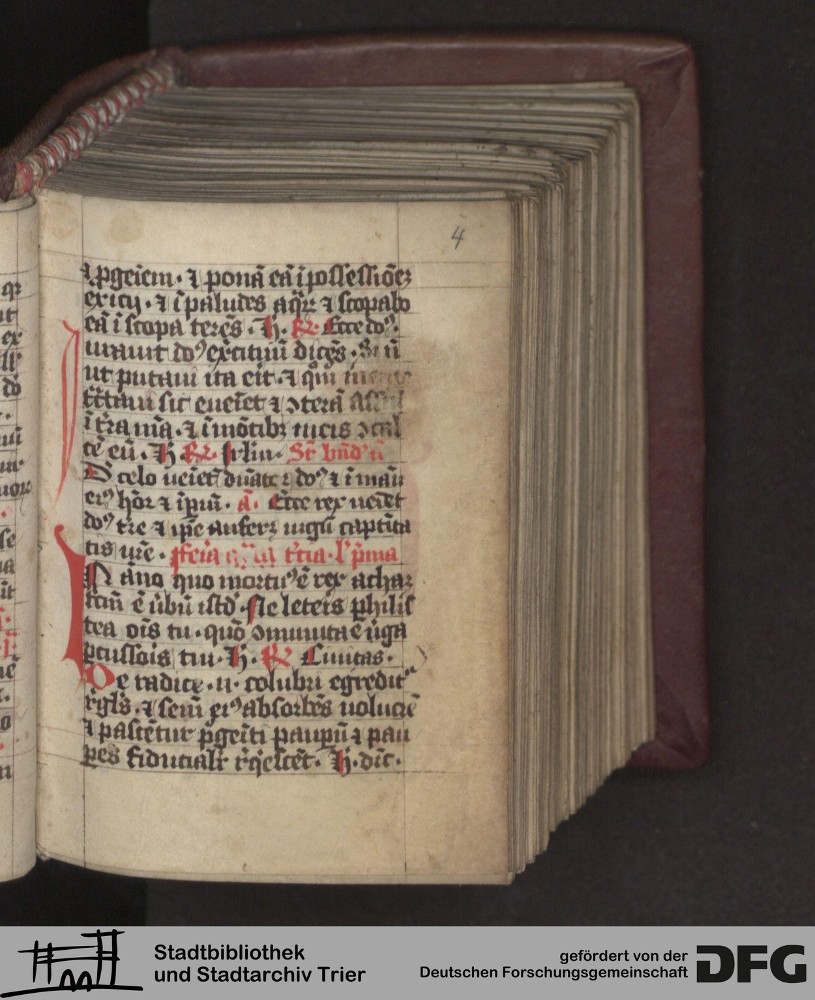 4
⁊ ꝓgeiem · ⁊ ponā eā ī possessiōeꝫ
ericij · ⁊ ī paludes aq̄ꝝ ⁊ scopabo
eā ī scopa terēs · H̄ · R̄ · Ecce dō⁹ ·
iurauit dō⁹ exercituū dicēs · Si n̄
ut putaui ita erit · ⁊ q̄m̄
tractaui sic eueīet ⁊ ↄterā
ī t̄ra mā · ⁊ ī mōtibꝫ meis ↄcul
cē eū · H̄ · R̄ ·
D celo ueīet dn̄ator dō⁹ ⁊ ī manu
ei⁹ hōr ⁊ īpiū · aᷓ · Ecce rex ueīet
dō⁹ t̄re ⁊ ip̄e auferꝫ iugū captiuita
tis n̄re · feria t̄cia · l' p̄ma
In āno quo mortu⁹ ē rex achaz
fc̄m̄ ē ūbū istd̄ · Ne leteris philis
tea oīs tu · quō ↄminuta ē ūga
ꝑcussoīs tui · H̄ · R̄ Ciuitas ·
De radice · n̄ · colubri egredit᷑
rgl's · ⁊ semē ei⁹ absorbēs uolucrē
⁊ pascētur p̄geīti paupū ⁊ pau
ꝑes fiducialr̄ rq̄escēt · H̄ · dic̄ ·
Stadtbibliothek
und Stadtarchiv Trier
gefördert von der
Deutschen Forschungsgemeinschaft
DFG